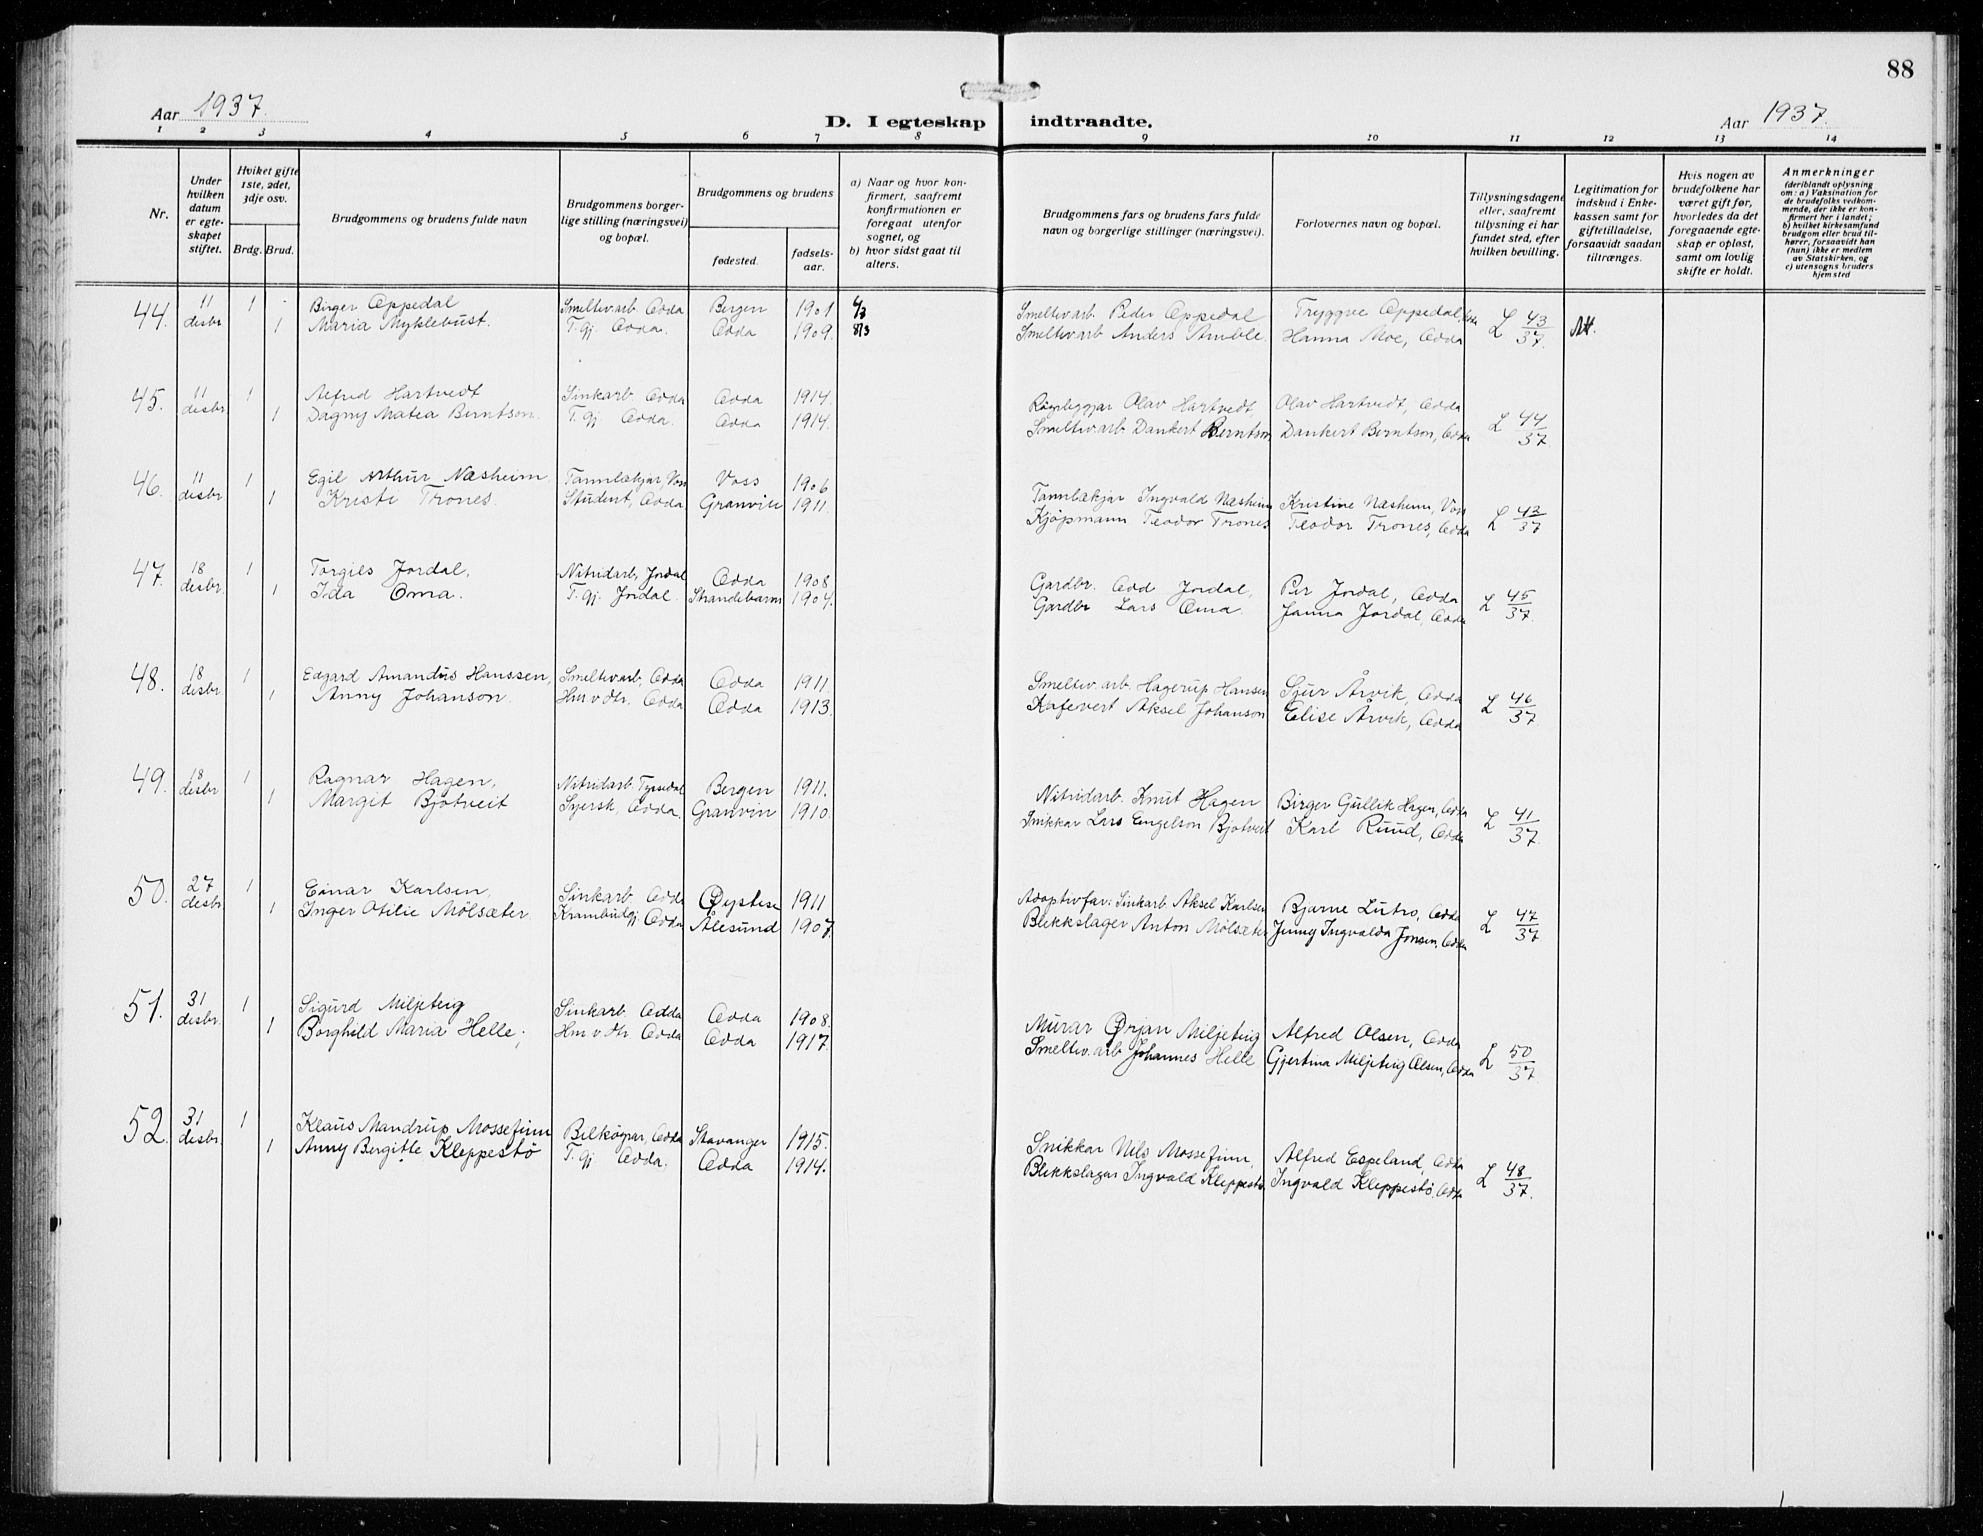 88
Aar 1937.
D. I egteskap indtraadte.
Aar 1937.
1 2 3 4 5 6 7 8 9 10 11 12 13 14
Nr.
Under hvilken datum er egteskapet stiftet.
Hvilket gifte 1ste, 2det, 3dje osv.
Brdg. Brud.
Brudgommens og brudens fulde navn
Brudgommens borgerlige stilling (næringsvei) og bopæl.
Brudgommens og brudens
fødested. fødselsaar.
a) Naar og hvor konfirmert, saafremt konfirmationen er foregaat utenfor sognet, og
b) hvor sidst gaat til alters.
Brudgommens fars og brudens fars fulde navn og borgerlige stillinger (næringsvei).
Forlovernes navn og bopæl.
Tillysningsdagene eller, saafremt tillysning ei har fundet sted, efter hvilken bevilling.
Legitimation for indskud i Enkekassen samt for giftetilladelse, forsaavidt saadan tiltrænges.
Hvis nogen av brudefolkene har været gift før, hvorledes da det foregaaende egteskap er opløst, samt om lovlig skifte er holdt.
Anmerkninger (deriblandt oplysning om: a) Vaksination for de brudefolks vedkommende, der ikke er konfirmert her i landet; b) hvilket kirkesamfund brudgom eller brud tilhører, forsaavidt han (hun) ikke er medlem av Statskirken, og c) utensogns bruders hjemsted
44. 11 desbr 1 Birger Oppedal Smeltev.arb Odda Bergen 1901 Smeltev.arb Peder Oppedal Tryggve Oppedal, Odda L 43/37.
1 Maria Myklebust. T. gj. Odda. Odda 1909. Smeltev.arb Anders Amble. Hanna Moe, Odda
45. 11 desbr 1 Alfred Hartvedt Sinkarb. Odda Odda 1914. Røyrleggjar Olav Hartvedt, Olav Hartvedt, Odda L 44/37
1 Dagny Matea Berntson. T. gj Odda. Odda 1914. Smeltev.arb Dankert Berntson Dankert Berntson, Odda
46. 11 desbr. 1 Egil Arthur Næsheim Tannlækjar, Voss Voss 1906 Tannlækjar Ingvald Næsheim Kristine Næsheim, Voss L 42/37
1 Kristi Trones. Student, Odda Granvin 1911. Kjøpmann Teodor Trones Teodor Trones, Odda
47. 18 desbr. 1 Torgils Jordal, Nitridarb, Jordal Odda 1908. Gardbr. Odd Jordal, Per Jordal, Odda L 45/37.
1 Ida Oma. T. gj. Jordal. Strandebarm 1904. Gardbr Lars Oma. Janna Jordal, Odda
48. 18 desbr 1 Edgard Amandus Hanssen, Smeltev.arb, Odda Odda 1911. Smeltev. arb. Hagerup Hansen Sjur Årvik, Odda L 46/37.
1 Anny Johanson. Hm v dtr. Odda Odda 1913 Kafevert Aksel Johanson Elise Årvik, Odda
49. 18 desbr 1 Ragnar Hagen, Nitridarb. Tyssedal Bergen 1911. Nitridarb. Knut Hagen Birger Gullik Hagen, Odda L 41/37.
1 Margit Bjotveit Syersk, Odda. Granvin 1910. Snikkar Lars Engelson Bjotveit Karl Ruud, Odda
50. 27 desbr 1 Einar Karlsen, Sinkarb. Odda Øystese 1911 Adoptivfar: Sinkarb Aksel Karlsen Bjarne Lutro, Odda L 47/37.
1 Inger Otilie Mölsæter Krambutgj. Odda Ålesund 1907 Blikkslager Anton Mölsæter Jenny Ingvalda Jonsen, Odda
51. 31 desbr. 1 Sigurd Miljeteig Sinkarb. Odda Odda 1908. Murar Ørjan Miljeteig Alfred Olsen, Odda L 50/37.
1 Borghild Maria Helle; Hm v. dtr Odda Odda 1917. Smeltev. arb Johannes Helle Gjertina Miljeteig Olsen, Odda
52. 31 desbr. 1 Klaus Mandrup Mossefinn Bilköyrar, Odda Stavanger 1915. Snikkar Nils Mossefinn, Alfred Espeland, Odda L 48/37.
1 Anny Bergitte Kleppestö T. gj. Odda. Odda 1914. Blikkslagar Ingvald Kleppestö Ingvald Kleppestö, Odda